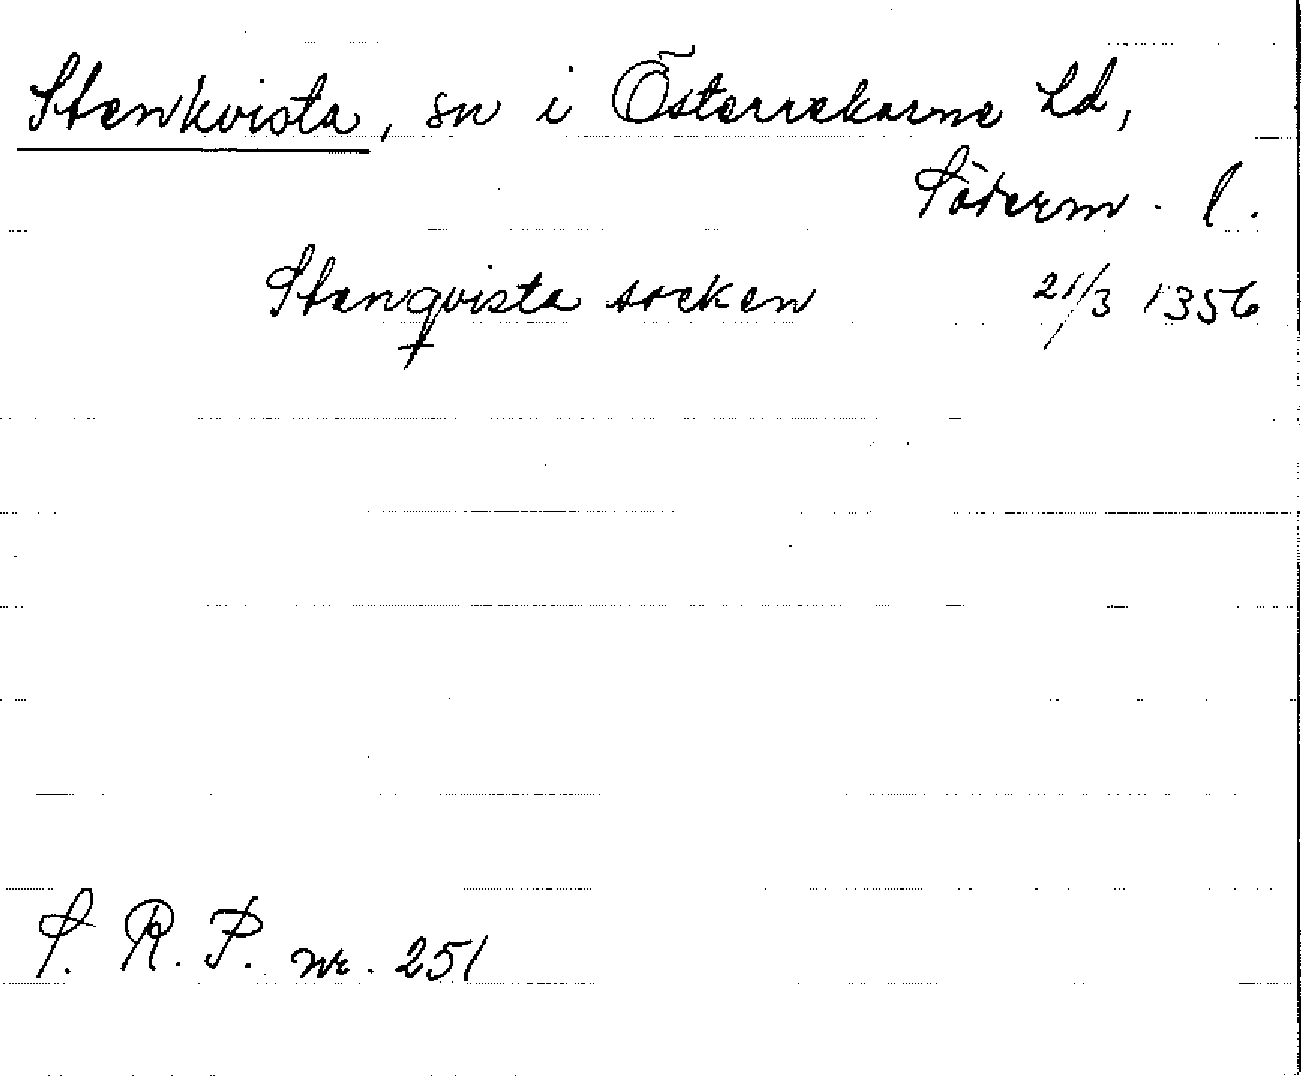 Stenkvista, sn i Österrekarne hd,
Söderm. l.
Stenqvista socken 21/3 1356
S. R. P. nr. 251